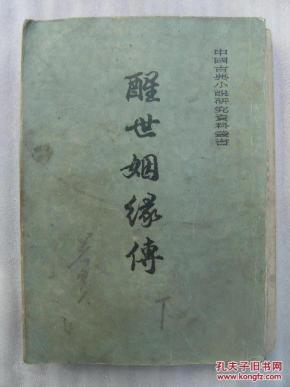 中國古典小說研究資料叢書
醒世姻緣傳
下
孔夫子旧书网